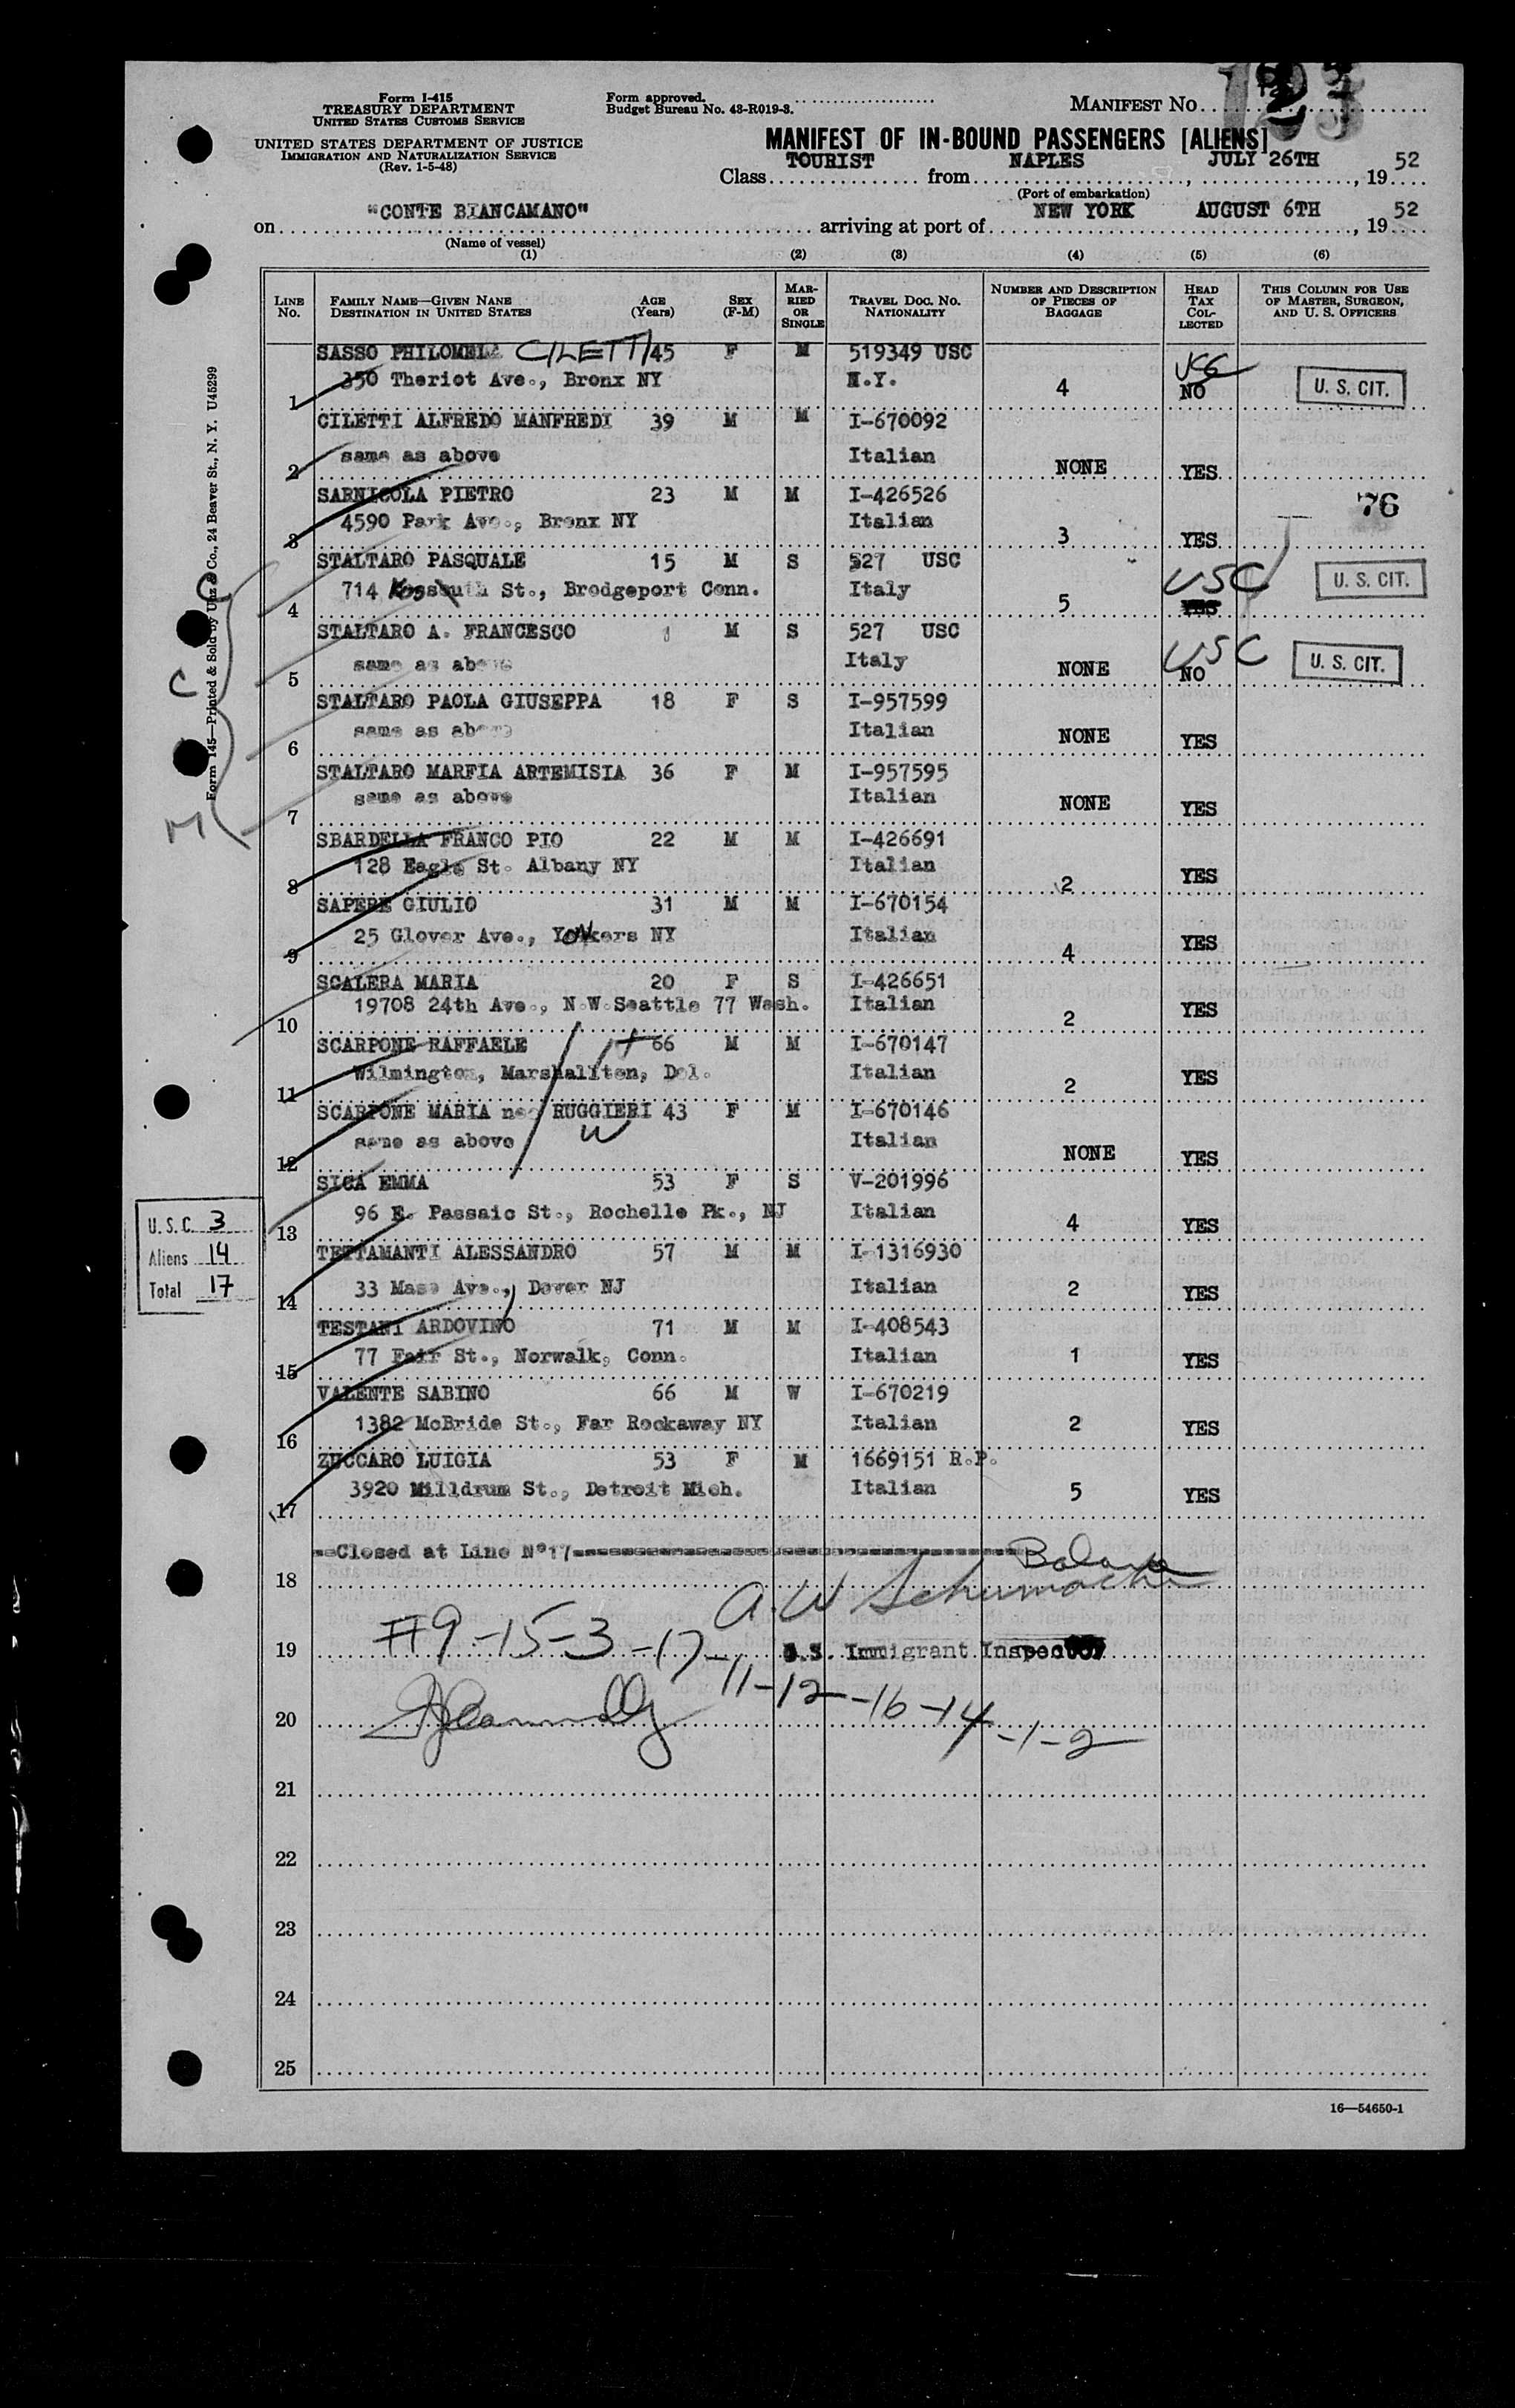 Form I-415
TREASURY DEPARTMENT
UNITED STATES CUSTOMS SERVICE
UNITED STATES DEPARTMENT OF JUSTICE
IMMIGRATION AND NATURALIZATION SERVICE
(Rev. 1-5-48)
Form approved.
Budget Bureau No. 43-R019-3.
MANIFEST NO.
MANIFEST OF IN-BOUND PASSENGERS [ALIENS]
Class TOURIST from NAPLES, JULY 26TH, 19 52
(Port of embarkation)
on "CONTE BIANCAMANO" arriving at port of NEW YORK AUGUST 6TH, 19 52
(Name of vessel)
(1) (2) (3) (4) (5) (6)
LINE No. FAMILY NAME—GIVEN NANE DESTINATION IN UNITED STATES AGE (Years) SEX (F-M) MARRIED OR SINGLE TRAVEL DOC. NO. NATIONALITY NUMBER AND DESCRIPTION OF PIECES OF BAGGAGE HEAD TAX COLLECTED THIS COLUMN FOR USE OF MASTER, SURGEON, AND U. S. OFFICERS
SASSO PHILOMELA CILETTI 45 F M 519349 USC
1 350 Theriot Ave., Bronx NY N.Y. 4 USC NO U. S. CIT.
CILETTI ALFREDO MANFREDI 39 M M I-670092
2 same as above Italian NONE YES
SARNICOLA PIETRO 23 M M I-426526 76
3 4590 Park Ave., Bronx NY Italian 3 YES
STALTARO PASQUALE 15 M S 527 USC
4 714 Kossuth St., Brodgeport Conn. Italy 5 USC YES U. S. CIT.
STALTARO A. FRANCESCO M S 527 USC
5 same as above Italy NONE USC NO U. S. CIT.
STALTARO PAOLA GIUSEPPA 18 F S I-957599
6 same as above Italian NONE YES
STALTARO MARFIA ARTEMISIA 36 F M I-957595
7 same as above Italian NONE YES
SBARDELLA FRANCO PIO 22 M M I-426691
8 128 Eagle St. Albany NY Italian 2 YES
SAPERE GIULIO 31 M M I-670154
9 25 Glover Ave., Yonkers NY Italian 4 YES
SCALERA MARIA 20 F S I-426651
10 19708 24th Ave., N.W.Seattle 77 Wash. Italian 2 YES
SCARPONE RAFFAELE 66 M M I-670147
11 Wilmington, Marshallten, Del. Italian 2 YES
SCARPONE MARIA nee RUGGIERI 43 F M I-670146
12 same as above W Italian NONE YES
SICA EMMA 53 F S V-201996
13 96 E. Passaic St., Rochelle Pk., NJ Italian 4 YES
TETTAMANTI ALESSANDRO 57 M M I-1316930
14 33 Mase Ave., Dover NJ Italian 2 YES
TESTANI ARDOVINO 71 M M I-408543
15 77 Fair St., Norwalk, Conn. Italian 1 YES
VALENTE SABINO 66 M W I-670219
16 1382 McBride St., Far Rockaway NY Italian 2 YES
ZUCCARO LUIGIA 53 F M 1669151 R.P.
17 3920 Milldrum St., Detroit Mich. Italian 5 YES
Closed at Line Nº17
18 A. W. Schumacher
19 #9-15-3-17-11-12-16-14-1-2 U.S. Immigrant Inspector
20
21
22
23
24
25
U.S.C. 3
Aliens 14
Total 17
C
C
M
Form 145—Printed & Sold by Unz & Co., 24 Beaver St., N. Y. U45299
16—54650-1